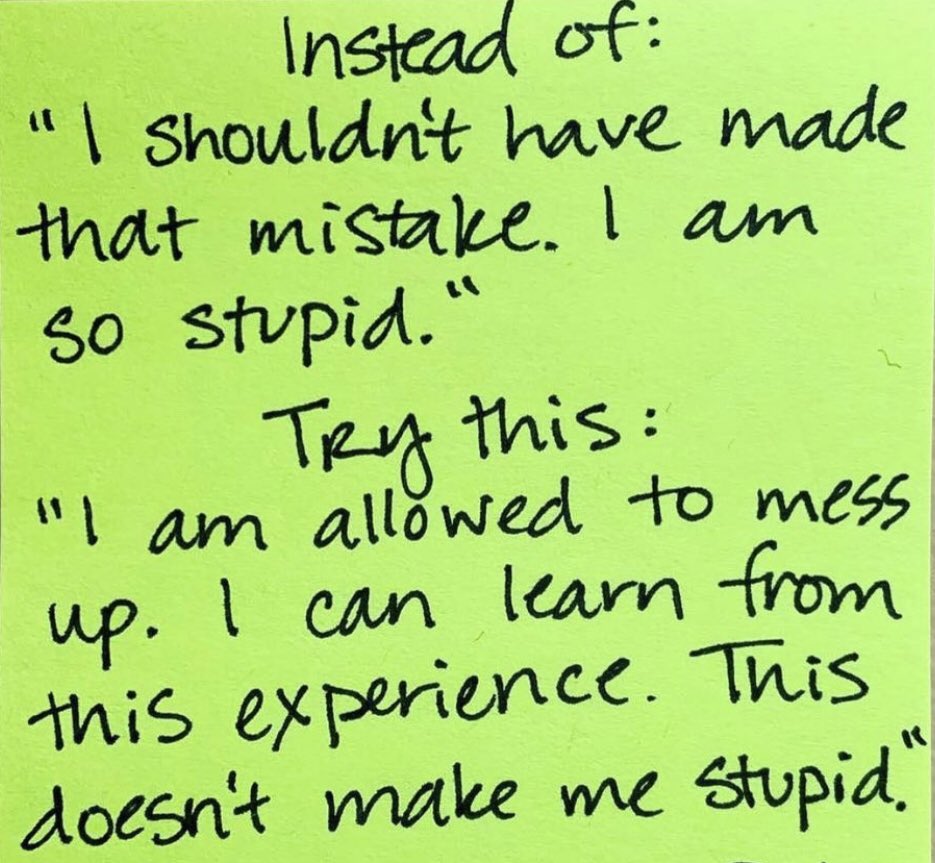 Instead of:
"I shouldn't have made
that mistake. I am
so stupid."
Try this:
"I am allowed to mess
up. I can learn from
this experience. This
doesn't make me stupid."